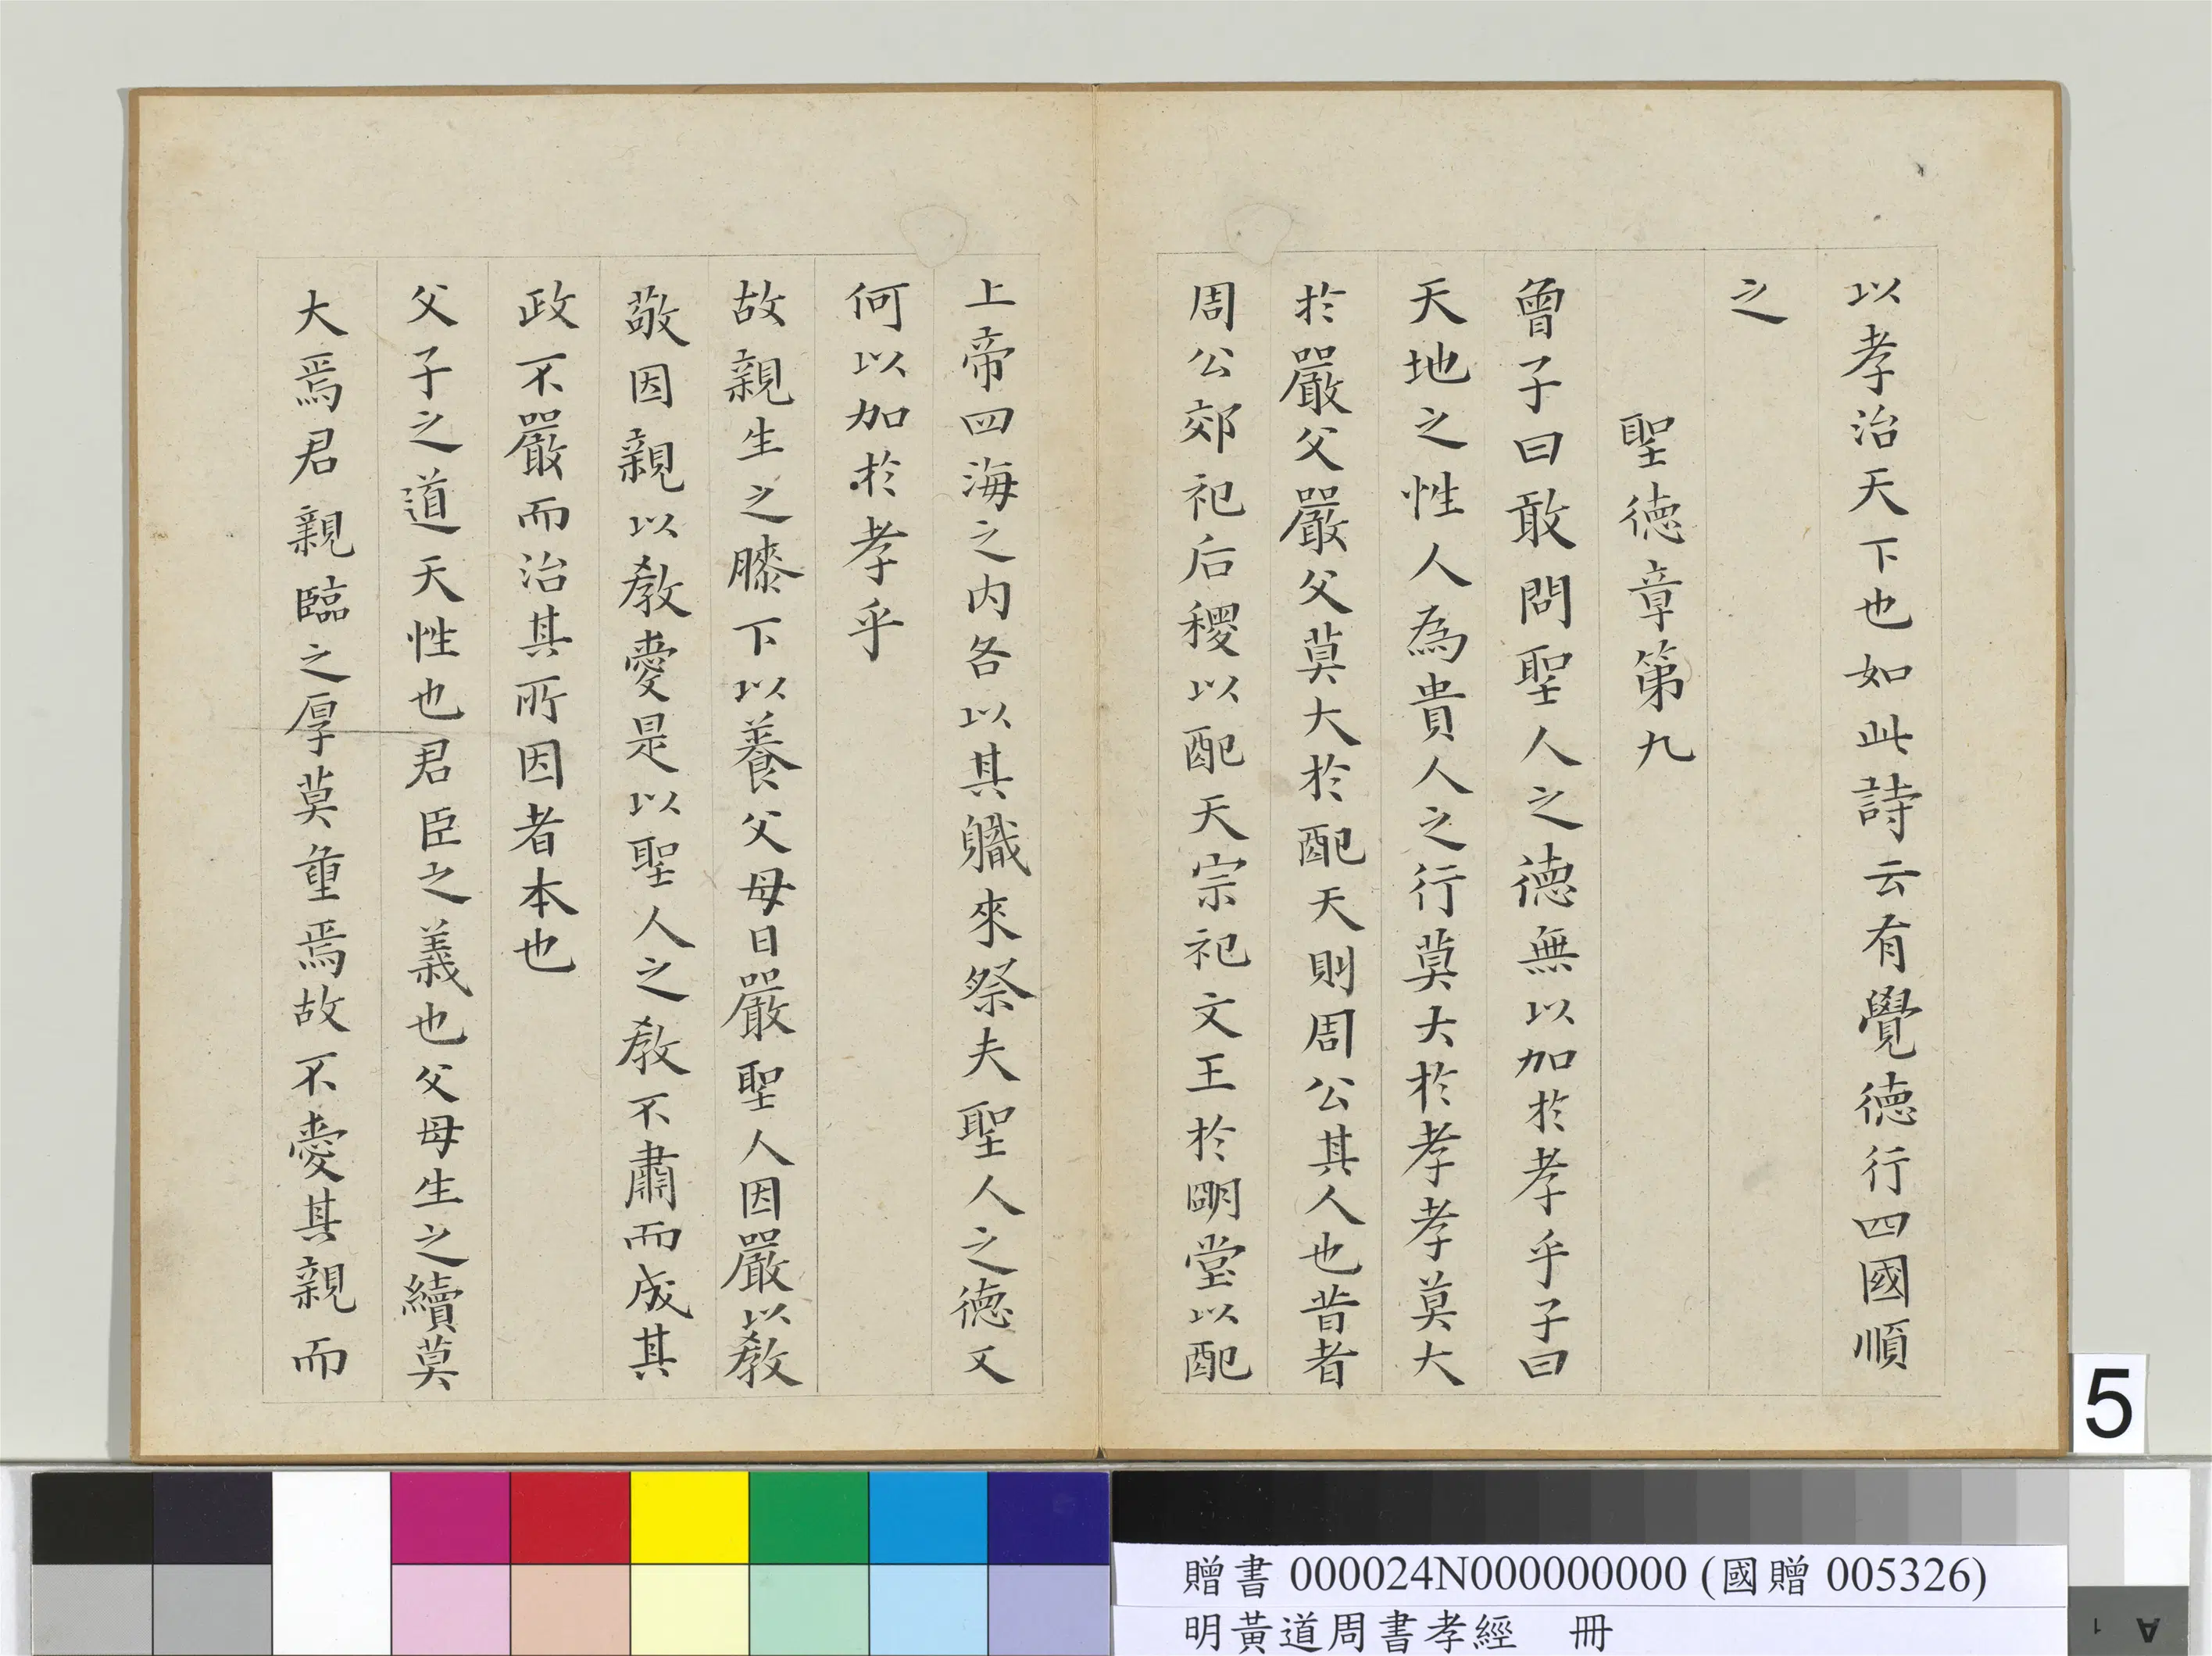 以孝治天下也如此詩云有覺德行四國順
之
聖德章第九
曾子曰敢問聖人之德無以加於孝乎子曰
天地之性人為貴人之行莫大於孝孝莫大
於嚴父嚴父莫大於配天則周公其人也昔者
周公郊祀后稷以配天宗祀文王於明堂以配
上帝四海之内各以其職來祭夫聖人之德又
何以加於孝乎
故親生之膝下以養父母日嚴聖人因嚴以敎
敬因親以敎愛是以聖人之敎不肅而成其
政不嚴而治其所因者本也
父子之道天性也君臣之義也父母生之續莫
大焉君親臨之厚莫重焉故不愛其親而
5
贈書 000024N000000000 (國贈 005326)
明黃道周書孝經 冊
A 1